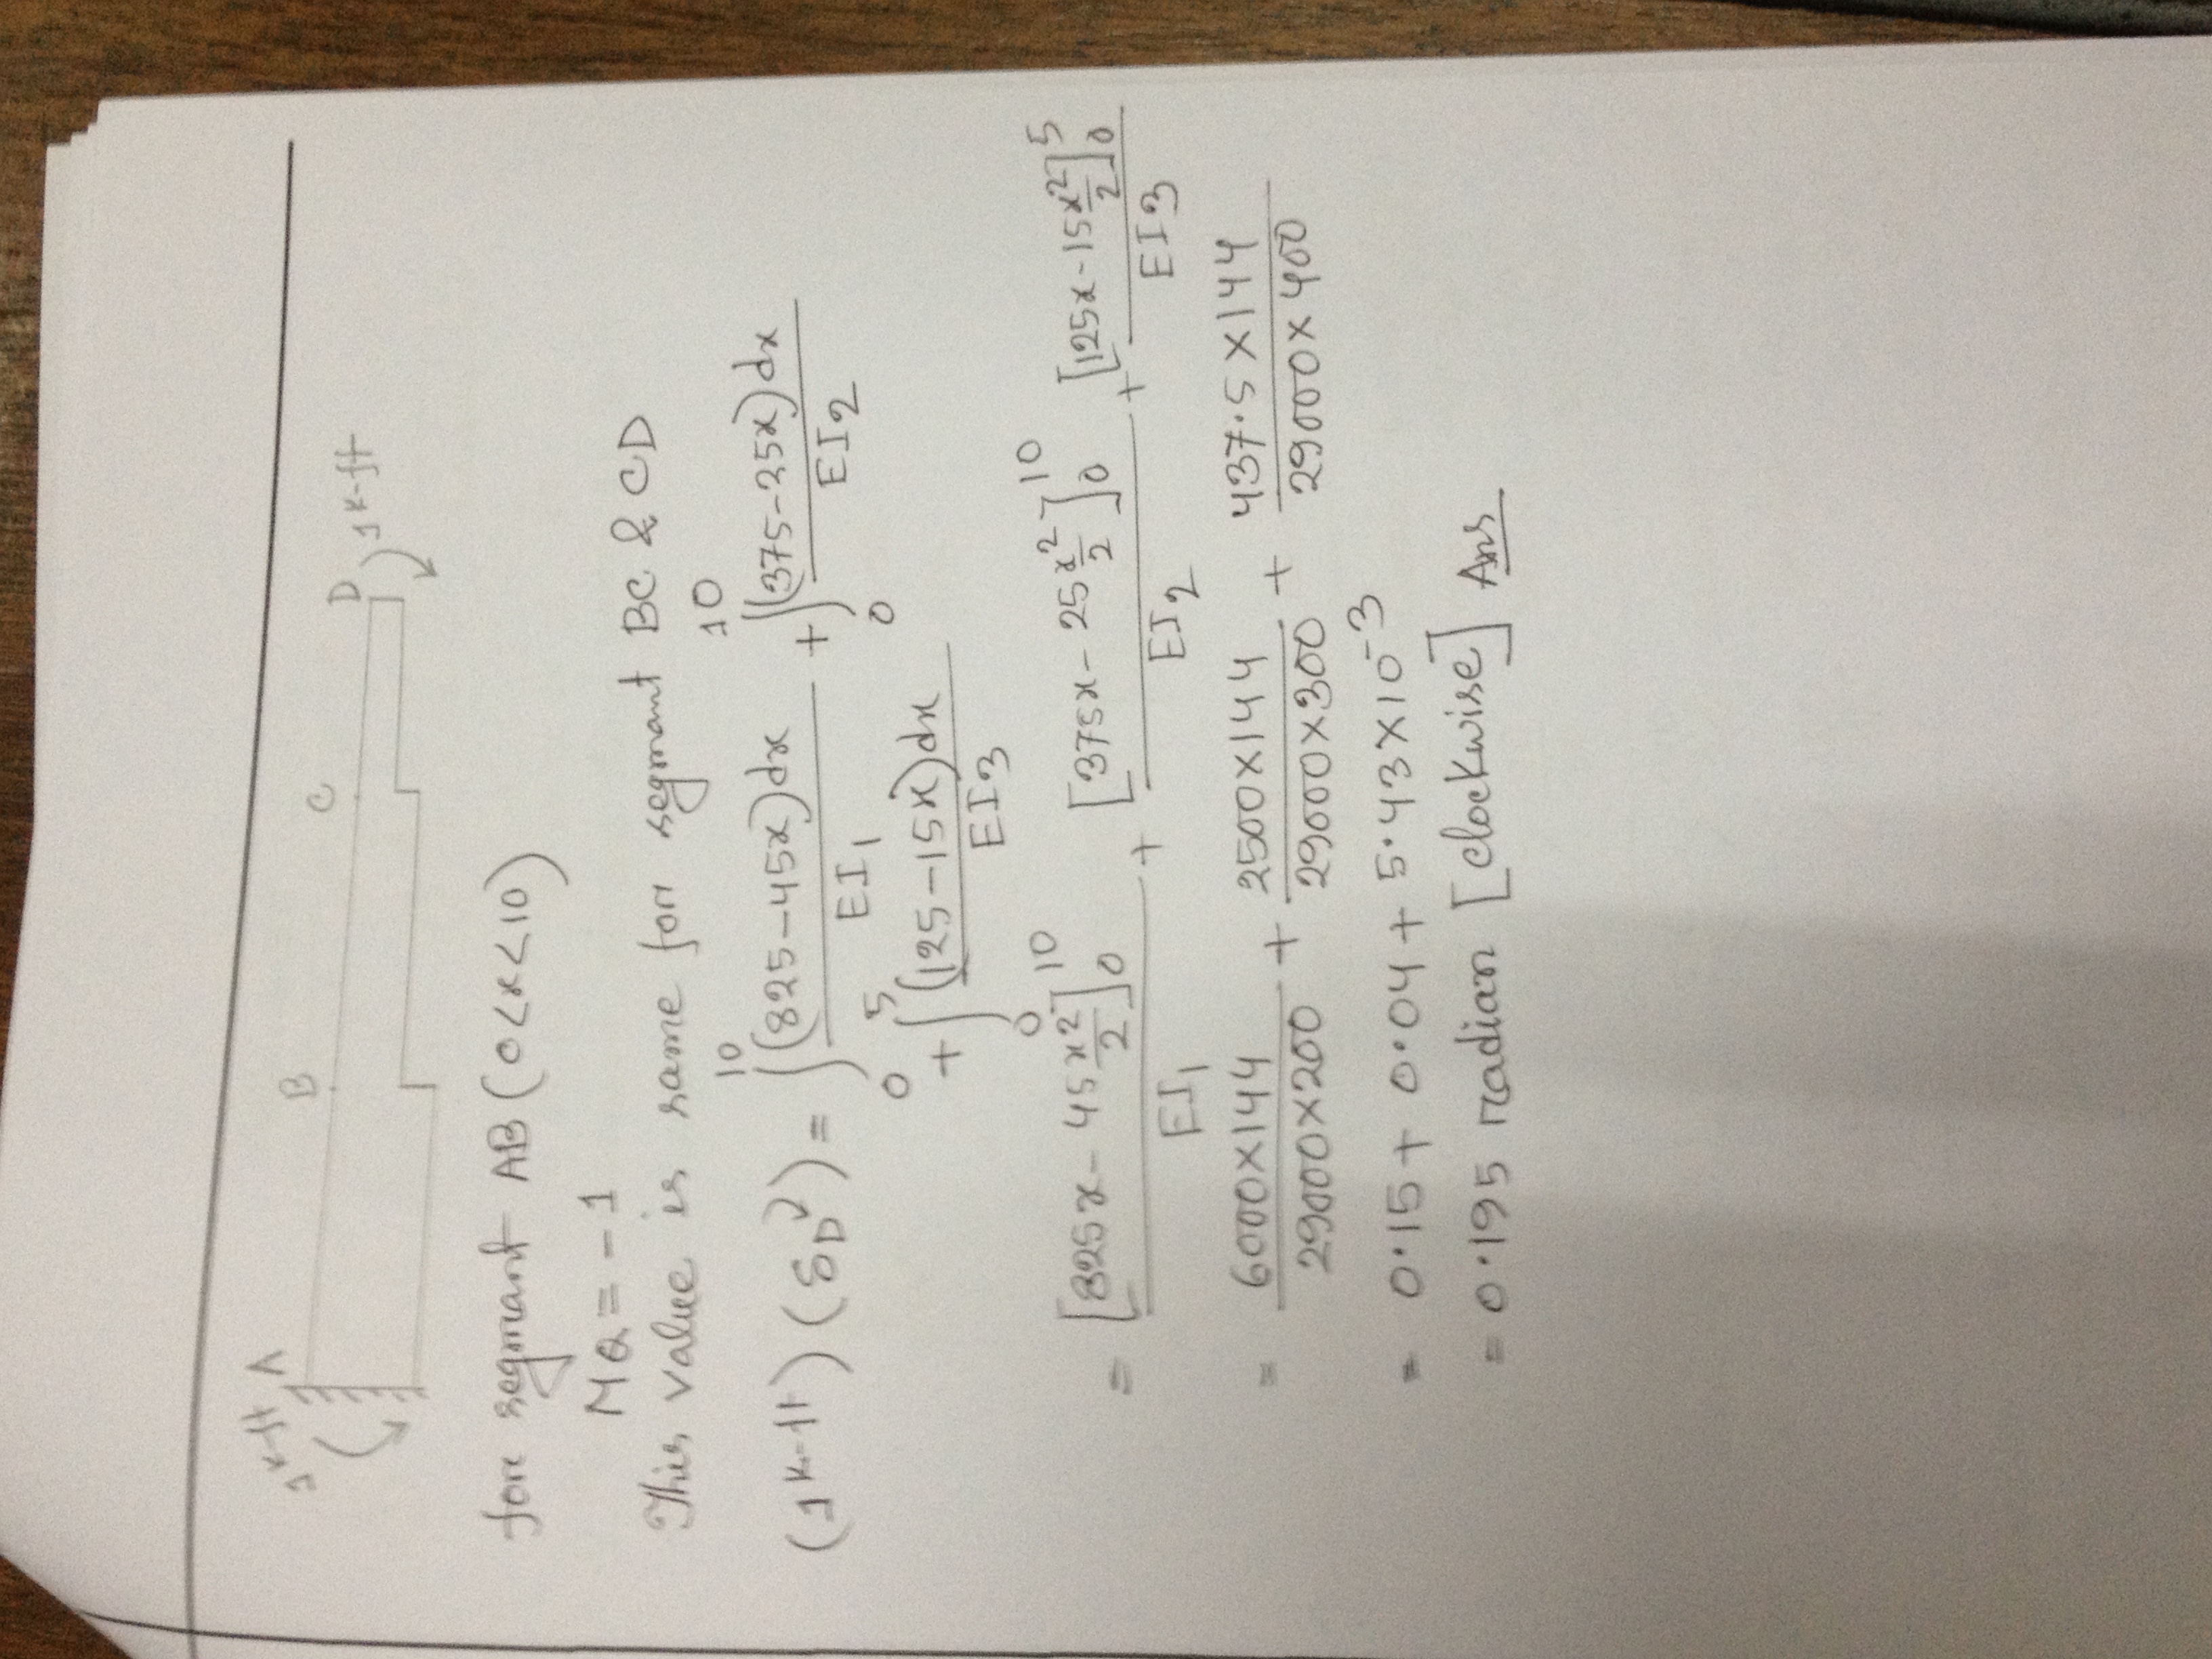 1 K-ft A B C D 1 K-ft
for segmant AB (0<x<10)
MQ = -1
This value is same for segmant BC & CD
(1 K-ft) (δD) = ∫₀¹⁰ (825-45x)dx / EI1 + ∫₀¹⁰ (375-25x)dx / EI2
+ ∫₀⁵ (125-15x)dx / EI3
= [825x - 45 x²/2]₀¹⁰ / EI1 + [375x - 25 x²/2]₀¹⁰ / EI2 + [125x - 15 x²/2]₀⁵ / EI3
= 6000×144 / 29000×200 + 2500×144 / 29000×300 + 437.5×144 / 29000×400
= 0.15 + 0.04 + 5.43×10⁻³
= 0.195 radian [clockwise] Ans